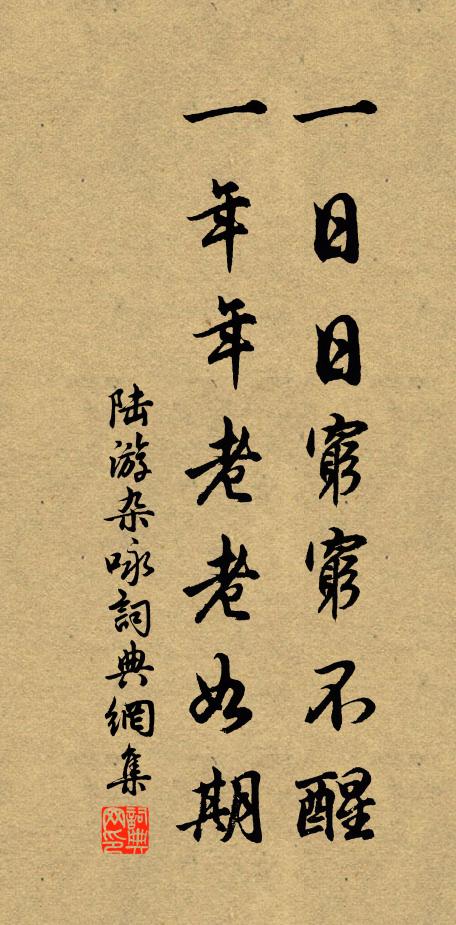 一日日窮窮不醒
一年年老老如期
陆游杂咏詞典網集
詞典網印